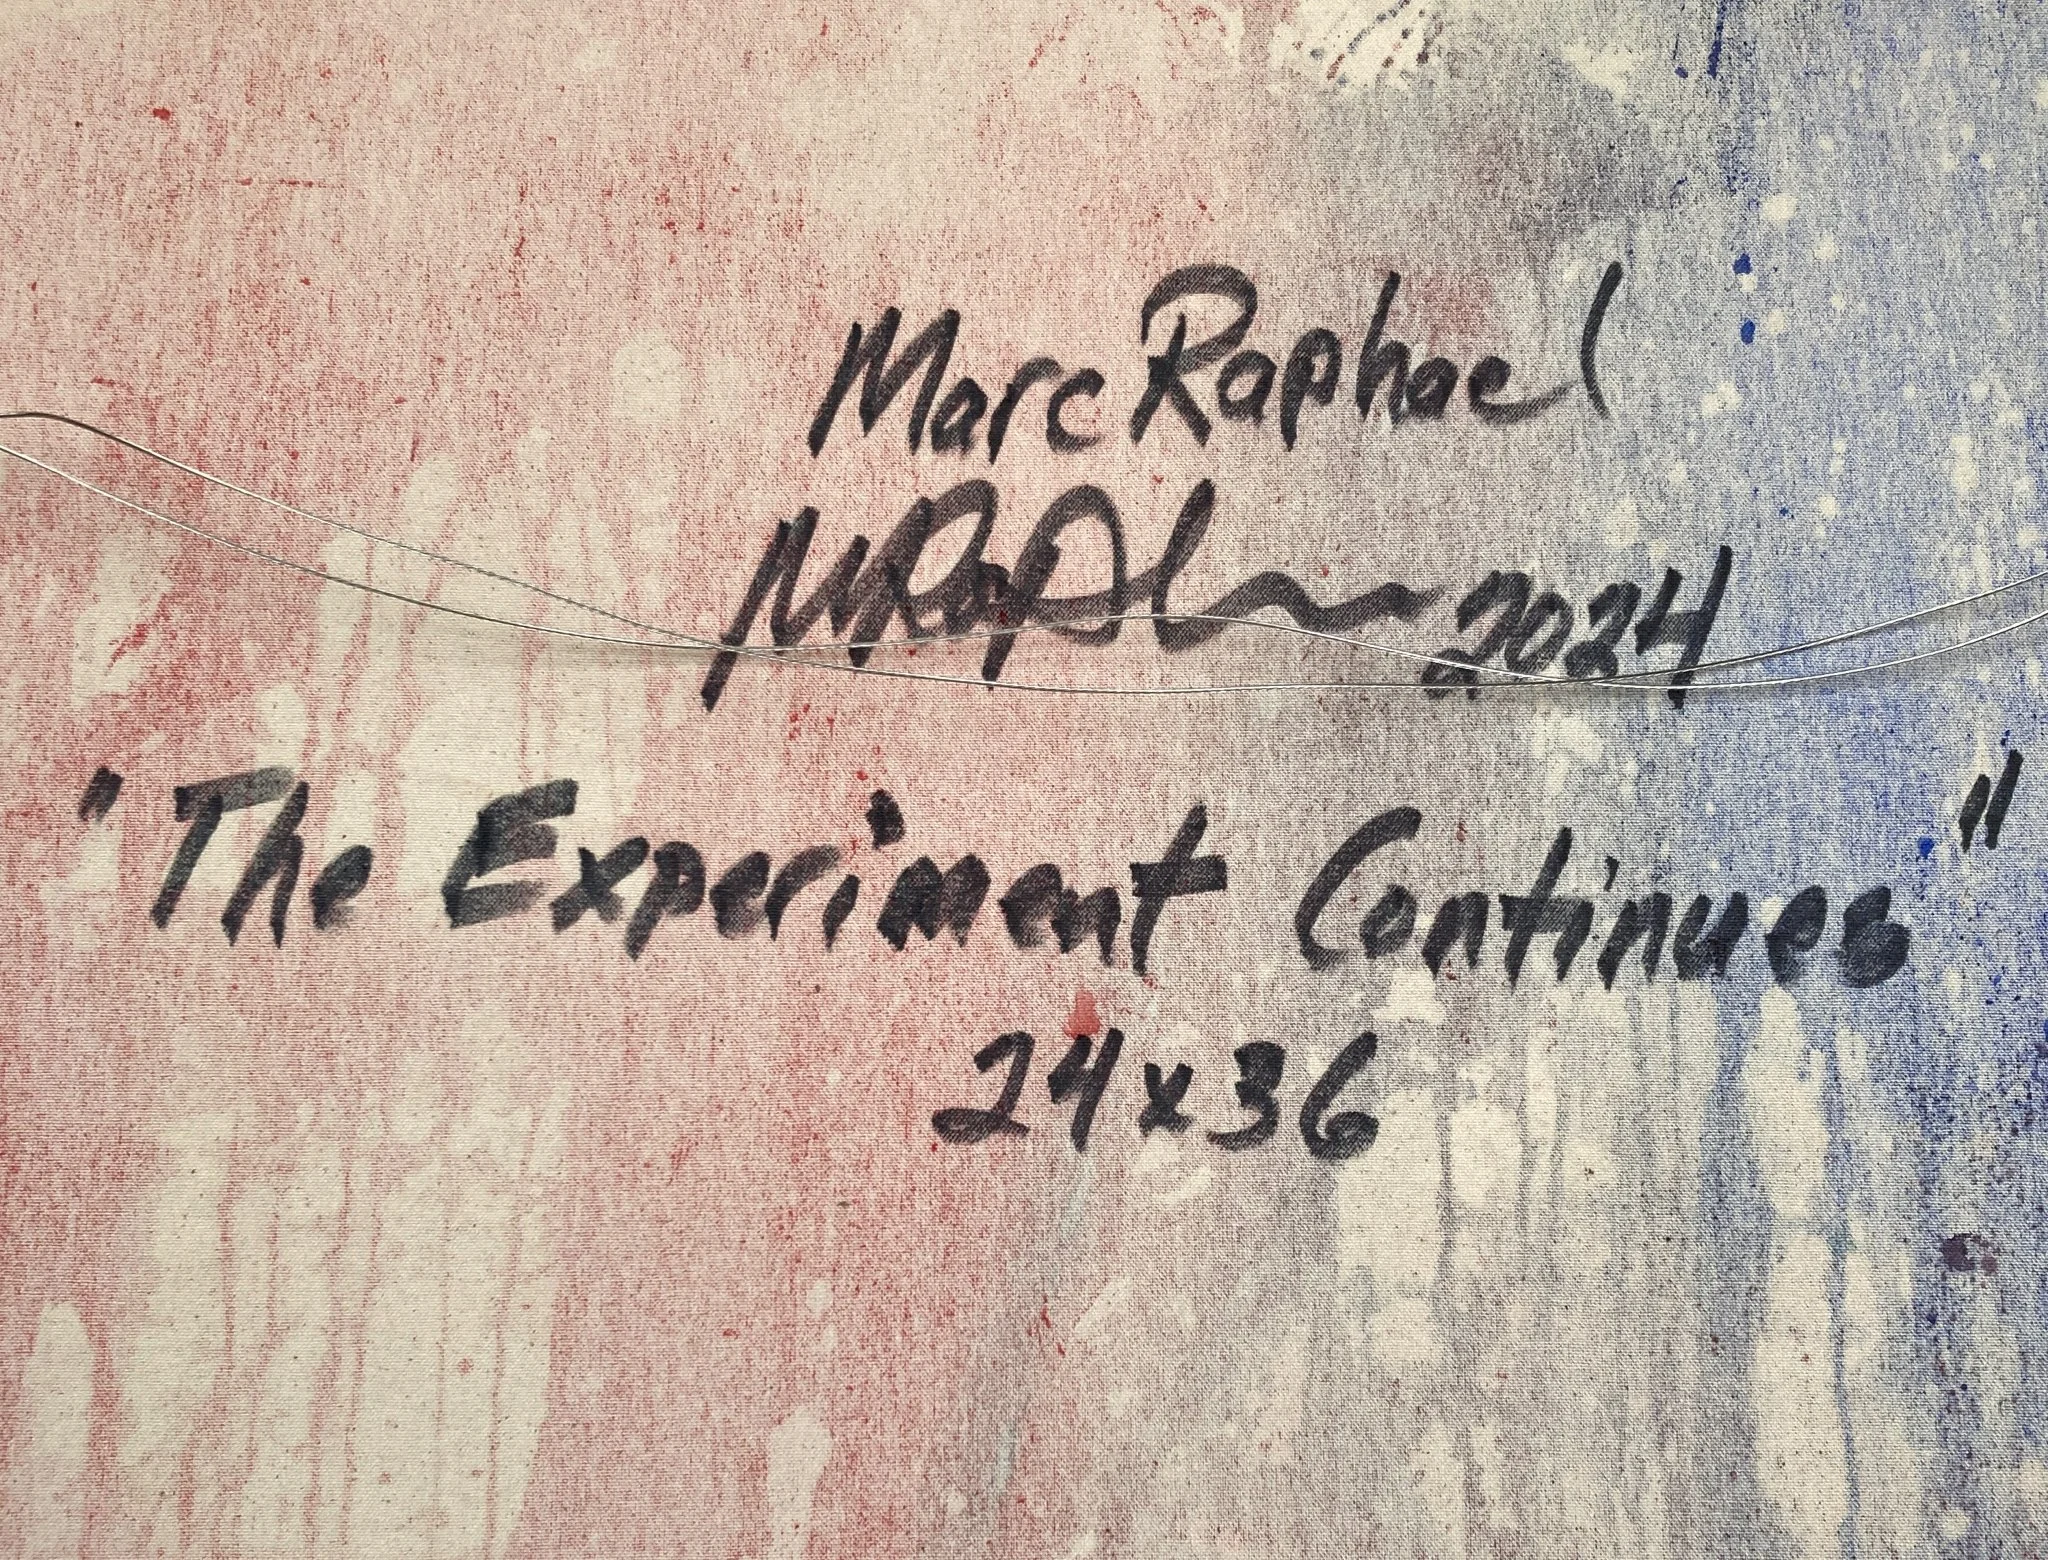 Marc Raphael
MRaph 2024
"The Experiment Continues"
24x36